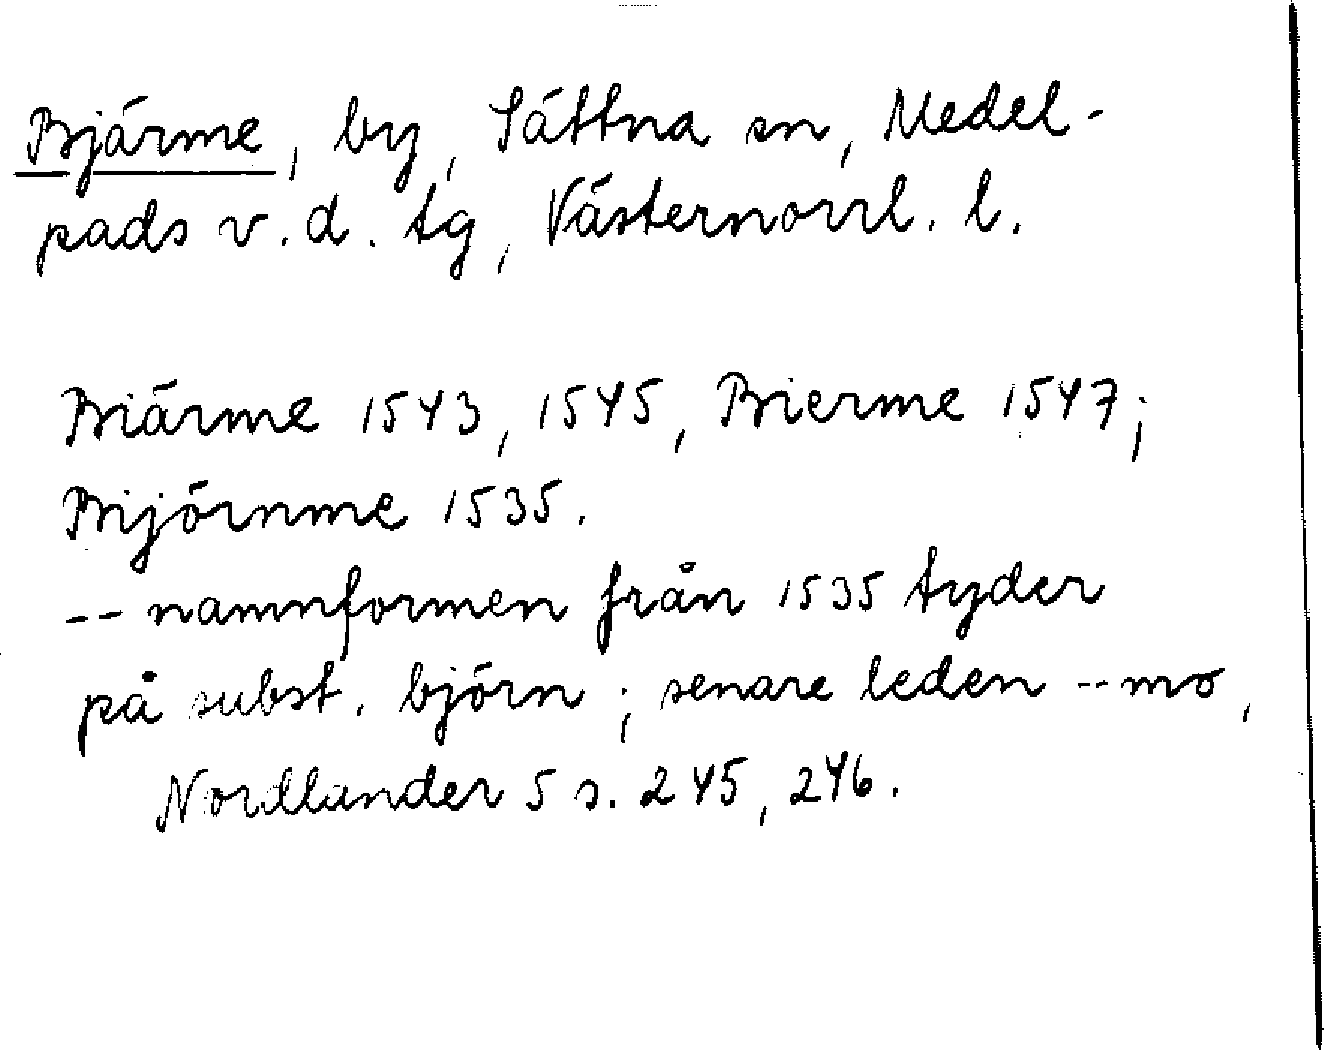 Bjärme, by, Sättna sn, Medel-
pads v. d. tg, Västernorrl. l.
Biärme 1543, 1545, Bierme 1547;
Bijörnme 1535.
-- namnformen från 1535 tyder
på subst. björn; senare leden -- mo,
Nordlander 5 s. 245, 246.